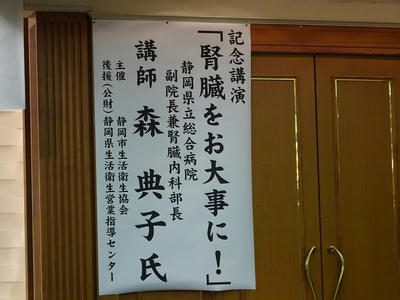 記念講演
「腎臓をお大事に!」
静岡県立総合病院
副院長兼腎臓内科部長
講師 森 典子氏
主催 静岡市生活衛生協会
後援(公財)静岡県生活衛生営業指導センター